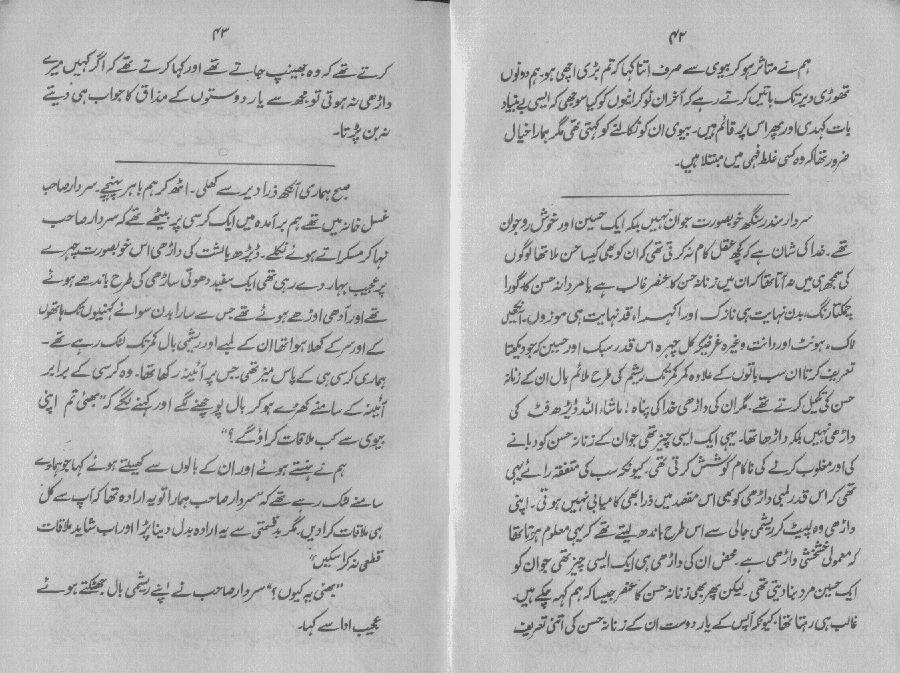 ۴۲
ہم نے متاثر ہو کر بیوی سے صرف اتنا کہا کہ تم بڑی اچھی ہو۔ ہم دونوں
تھوڑی دیر تک باتیں کرتے رہے کہ آخر ان نوکرانیوں کو کیا سوجھی کہ ایسی بے بنیاد
بات کہدی اور پھر اس پر قائم ہیں۔ بیوی ان کو نکالنے کو کہتی تھی مگر ہمارا خیال
ضرور تھا کہ وہ کسی غلط فہمی میں مبتلا ہیں۔
سردار مندر سنگھ خوبصورت جوان نہیں بلکہ ایک حسین اور خوش رو جوان
تھے۔ خدا کی شان ہے کہ کچھ عقل کام نہ کرتی تھی کہ ان کو بھی کیسا حسن ملا تھا لوگوں
کی سمجھ ہی میں نہ آتا تھا کہ ان میں زنانہ حسن کا عنصر غالب ہے یا مردانہ حسن کا۔ گورا
چمکتا رنگ، بدن نہایت ہی نازک اور اکہرا، قد نہایت ہی موزوں۔ آنکھیں
ناک، ہونٹ اور دانت وغیرہ غرضیکہ کل چہرہ اس قدر سبک اور حسین کہ جو دیکھتا
تعریف کرتا ان سب باتوں کے علاوہ کمر کمر تک ریشم کی طرح ملائم بال ان کے زنانہ
حسن کی تکمیل کرتے تھے۔ مگر ان کی داڑھی خدا کی پناہ! ماشاء اللہ ڈیڑھ فٹ کی
داڑھی نہیں بلکہ داڑھا تھا۔ یہی ایک ایسی چیز تھی جو ان کے زنانہ حسن کو دبانے
کی اور مغلوب کرنے کی ناکام کوشش کرتی تھی۔ کیونکہ سب کی متفقہ رائے یہی
تھی کہ اس قدر لمبی داڑھی کو بھی اس مقصد میں ذرا بھی کامیابی نہیں ہوتی۔ اپنی
داڑھی وہ لپیٹ کر ریشمی جالی سے اس طرح باندھ لیتے تھے کہ یہی معلوم ہوتا تھا
کہ معمولی خشخشی داڑھی ہے۔ محض ان کی داڑھی ہی ایک ایسی چیز تھی جو ان کو
ایک حسین مرد بنا دیتی تھی۔ لیکن پھر بھی زنانہ حسن کا عنصر جیسا کہ ہم کہہ چکے ہیں۔
غالب ہی رہتا تھا۔ کیونکہ آپس کے یار دوست ان کے زنانہ حسن کی اتنی تعریف
۴۳
کرتے تھے کہ وہ جھینپ جاتے تھے اور کہا کرتے تھے کہ اگر کہیں میرے
داڑھی نہ ہوتی تو مجھ سے یار دوستوں کے مذاق کا جواب ہی دیتے
نہ بن پڑتا۔
صبح ہماری آنکھ ذرا دیر سے کھلی۔ اٹھ کر ہم باہر پہنچے۔ سردار صاحب
غسل خانہ میں تھے ہم برآمدہ میں ایک کرسی پر بیٹھے تھے کہ سردار صاحب
نہا کر مسکراتے ہوئے نکلے۔ ڈیڑھ بالشت کی داڑھی اس خوبصورت چہرے
پر عجیب بہار دے رہی تھی ایک سفید دھوتی ساڑھی کی طرح باندھے ہوئے
تھے اور آدھی اوڑھے ہوئے تھے جس سے سارا بدن سوائے کہنیوں تک ہاتھوں
کے اور سر کے کھلا ہوا تھا ان کے لمبے اور ریشمی بال کمر تک لٹک رہے تھے۔
ہماری کرسی ہی کے پاس میز تھی جس پر آئینہ رکھا تھا۔ وہ کرسی کے برابر
آئینہ کے سامنے کھڑے ہو کر بال پوچھنے لگے اور کہنے لگے کہ "بھئی تم اپنی
بیوی سے کب ملاقات کراؤ گے؟"
ہم نے ہنستے ہوئے اور ان کے بالوں سے کھیلتے ہوئے کہا جو ہمارے
سامنے لٹک رہے تھے کہ "سردار صاحب ہمارا تو یہ ارادہ تھا کہ آپ سے کل
ہی ملاقات کرا دیں۔ مگر بدقسمتی سے یہ ارادہ بدل دینا پڑا اور اب شاید ملاقات
قطعی نہ کرا سکیں"
"بھئی یہ کیوں؟" سردار صاحب نے اپنے ریشمی بال جھٹکتے ہوئے
عجیب ادا سے کہا۔